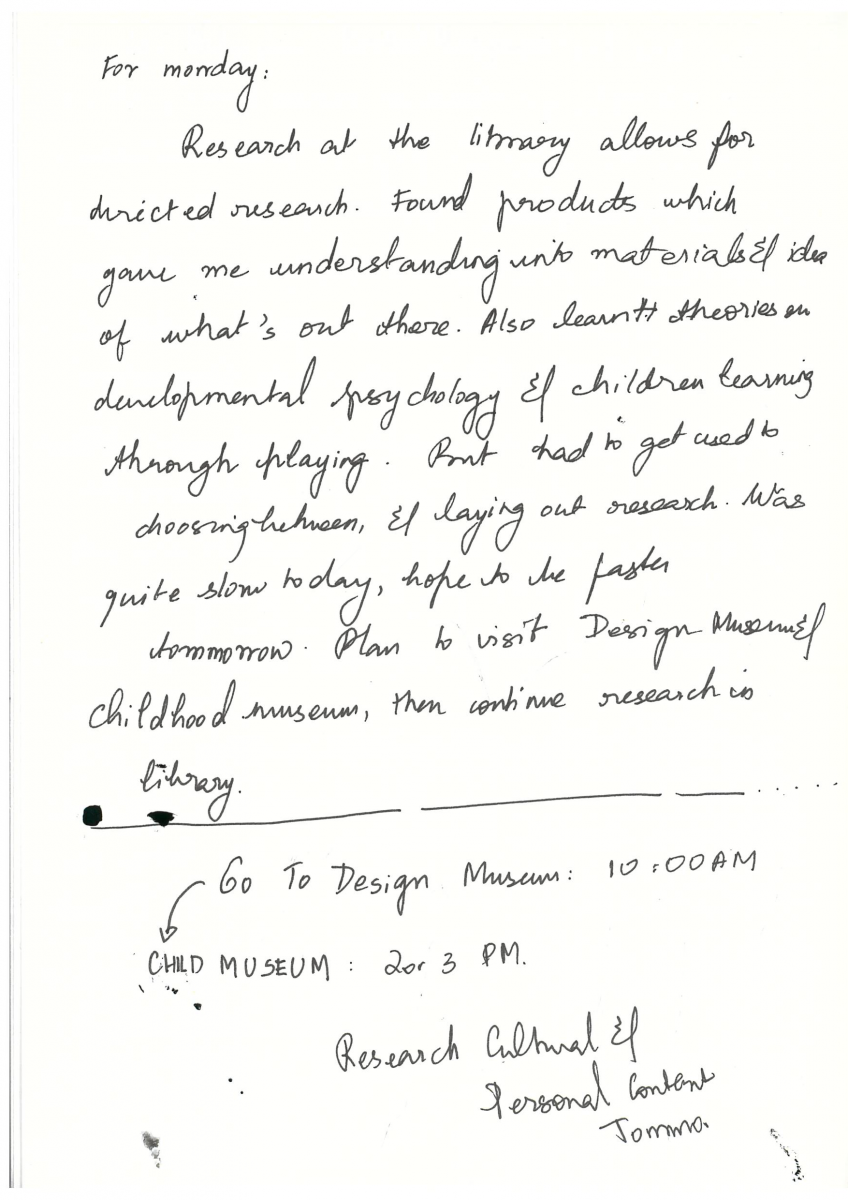 For monday:
Research at the library allows for
directed research. Found products which
gave me understanding into materials & idea
of what's out there. Also learntt theories on
developmental psychology & children learning
through playing. But had to get used to
choosing between, & laying out research. Was
quite slow today, hope to be faster
tommorrow. Plan to visit Design Museum &
childhood museum, then continue research in
library.
Go To Design Museum: 10:00AM
CHILD MUSEUM: 2 or 3 PM.
Research Cultural &
Personal Content
Tommo.